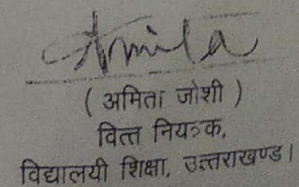 Amita
( अमिता जोशी )
वित्त नियत्रक,
विद्यालयी शिक्षा, उत्तराखण्ड।